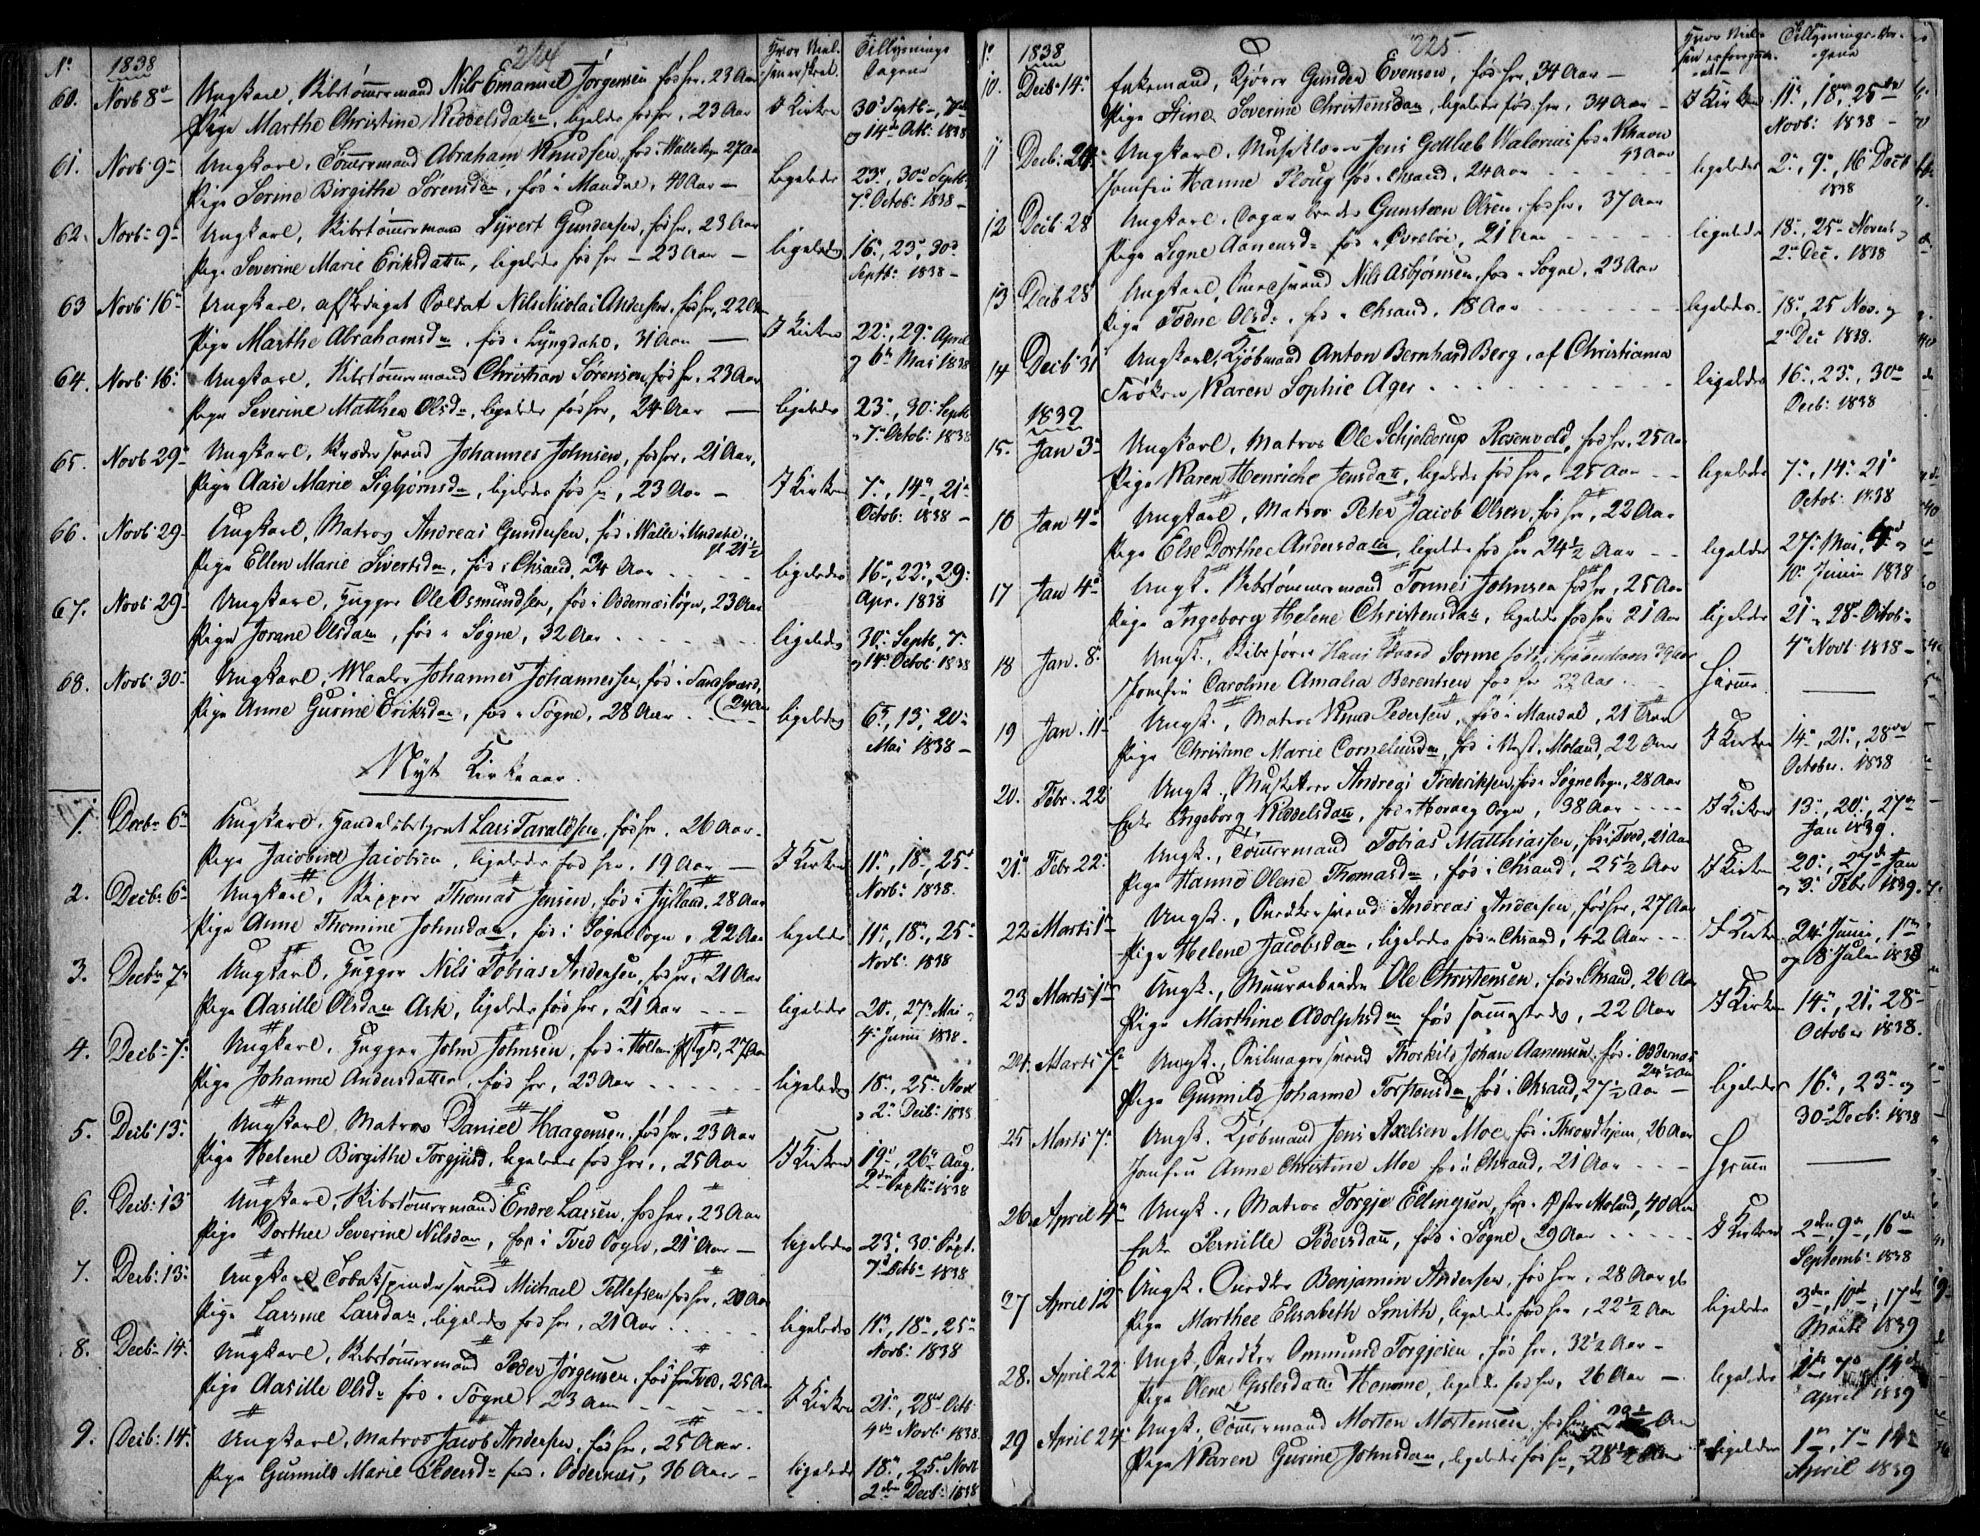 224
No 1838 Hvor Viel- Tillysnings
sen er skeet. Dagene
60. Novb 8de Ungkarl, Bibtømmermand Nils Emanuel Jørgensen fød her, 23 Aar
Pige Marthe Christine Keddelsdatn, ligeledes fød her, 23 Aar I Kirken 30te Septb, 7de
og 14de Oktb: 1838
61. Novb 9de Ungkarl, Tømmermand Abraham Knudsen, fød i Halle Sogn 27 Aar
Pige Serine Birgithe Sørensdn, fød i Mandal, 40 Aar ligeledes 23de, 30te Septb,
7de Octob: 1838
62. Novb 9de Ungkarl, Bibtømmermand Syvert Gundersen, fød her, 23 Aar
Pige Severine Marie Eriksdatter, ligeledes fød her 23 Aar ligeledes 16de, 23de, 30te
Septb: 1838
63 Novb 16de Ungkarl, afskediget Soldat Nils Nicolai Andersen, fød her, 22 Aar
Pige Marthe Abrahamsdn, fød i Lyngdahl, 31 Aar I Kirken 22de, 29de April
og 6te Mai 1838
64. Novb 16de Ungkarl, Bibtømmermand Christian Sørensen, fød her, 23 Aar
Pige Severine Mathea Olsdn, ligeledes fød her, 24 Aar ligeledes 23de, 30te Septb
7de Octob: 1838
65. Novb 29de Ungkarl, Skrædersvend Johannes Johnsen, fød her, 21 Aar,
Pige Aase Marie Sigbjørnsdn, ligeledes fød her, 23 Aar I Kirken 7de, 14de, 21de
Octob: 1838
66. Novb 29 Ungkarl, Matros Andreas Gundersen, fød i Halle i Undahl,
21 1/2
Pige Ellen Marie Sivertsdn, fød i Chsand, 24 Aar ligeledes 16de, 22de, 29de
Apr. 1838
67. Novb 29 Ungkarl, Hugger Ole Osmundsen, fød i Oddernæs Sogn, 23 Aar
Pige Jorane Olsdatn, fød i Søgne, 32 Aar ligeledes 30te Septb, 7de
og 14de Octob: 1838
68. Novb 30te Ungkarl, Maaler Johannes Johannessen, fød i Sandsværd,
24 Aar
Pige Anne Gurine Eriksdn, fød i Søgne, 28 Aar ligeledes 6te, 13de, 20de
Mai 1838
Nyt Kirkeaar.
1. Decbr 6te Ungkarl, Handelsbetjent Lars Taraldsen, fød her, 26 Aar
Pige Jacobine Jacobsen, ligeledes fød her, 19 Aar I Kirken 11te, 18de, 25de
Novb: 1838.
2. Decb: 6te Ungkarl, Skipper Thomas Jensen, fød i Jylland, 28 Aar
Pige Anne Thomine Johnsdatn, fød i Søgne Sogn, 22 Aar ligeledes 11te, 18de, 25de
Novb: 1838
3. Decbr 7de Ungkarl, Hugger Nils Tobias Andersen, fød her, 21 Aar
Pige Aasille Olsdatn Ask, ligeledes fød her, 21 Aar ligeledes 20de, 27de Mai
4de Junii 1838
4. Decb: 7de Ungkarl, Hugger John Johnsen, fød i Holum, 27 Aar
Pige Johanne Andersdatter, fød her, 23 Aar ligeledes 18de, 25de Novb
2den Decb: 1838
5. Decb: 13de Ungkarl Matros Daniel Haagensen, fød her, 23 Aar
Pige Helene Birgithe Torgiusd, ligeledes fød her, 25 Aar I Kirken 19de, 26de Aug.
2den Septbr 1838
6. Decb: 13 Ungkarl, Bibtømmermand Endre Larsen, fød her, 23 Aar
Pige Dorthee Severine Nilsdatn, fød i Tved Sogn, 21 Aar ligeledes 23de, 30te Sept.
7de Octb 1838
7. Decb: 13de Ungkarl Tobakspindersvend Michael Tellefsen fød her, 20 Aar
Pige Larsine Larsdatn, ligeledes fød her, 21 Aar ligeledes 11te, 18de, 25de
Novb: 1838
8. Decb: 14 Ungkarl, Bibtømmermand Peder Jørgensen fød i Tved, 25 Aar
Pige Aasille Olsdr fød i Søgne 23 Aar I Kirken 21de, 28de Octb
4de Novb: 1838
9. Decb: 14: Ungkarl, Matros Jacob Andersen, fød her, 25 Aar.
Pige Gunnild Marie Pedersdr fød i Oddernæs, 36 Aar ligeledes 18de, 25de Novb
2den Decb: 1838
225
No 1838 Hvor Viel- Tillysnings Da-
sen er foregaaet gene
10. Decb 14: Enkemand, Kjører Gunder Evensen, fød her, 34 Aar
Pige Stine Severine Christensdatn, ligeledes fød her, 34 Aar I Kirken 11te, 18de, 25de
Novb: 1838
11 Decb: 24: Ungkarl, Musiklærer Jens Gottlieb Valerius fød i Khavn
43 Aar
Jomfru Hanne Ploug fød i Chsand, 24 Aar ligeledes 2de, 9de, 16de Decb
1838
12 Decb 28 Ungkarl, Dagarbeider Gunsteen Olsen, fød her, 37 Aar
Pige Segne Aanensdr fød i Øvrebøe, 21 Aar ligeledes 18de, 25de Novemb og
2den Dec. 1838
13 Decb 28 Ungkarl, Tømmermand Nils Asbjørnsen, fød i Søgne, 23 Aar
Pige Todne Olsdr, fød i Chsand, 18 Aar ligeledes 18de, 25 Nov. og
2den Dec 1838.
14 Decb 31 Ungkarl, Kjøbmand Anton Bernhard Berg, af Christiania
Frøken Karen Sophie Ager ligeledes 16de, 23de, 30te
Decb: 1838
1839
15. Jan 3de Ungkarl, Matros Ole Schjelderup Rosenvold, fød her, 25 Aar
Pige Karen Henriche Jensdatn, ligeledes fød her, 25 Aar ligeledes 7de, 14de 21de
Octob: 1838
16 Jan 4de Ungkarl, Matros Peter Jacob Olsen, fød her, 22 Aar
Pige Else Dorthee Andersdatn, ligeledes fød her 24 1/2 Aar ligeledes 27de Mai, og
10de Junii 1838
17 Jan 4de Ungk. Bibtømmermand Tønnes Johnsen fød her, 25 Aar
Pige Ingeborg Helene Christensdatn, ligeledes fød her 21 Aar ligeledes 21de 28de Octob:
4de Novb 1838
18 Jan. 8de Ungk., Skibsfører Hans Edvard Sonne fød i Kjøbenhavn 39 Aar
Jomfru Caroline Amalia Berentsen fød her 22 Aar Hjemme
19 Jan. 11te Ungk., Matros Knud Pedersen, fød i Mandal, 21 Aar
Pige Christine Marie Corneliusdn, fød i Vest. Moland, 22 Aar I Kirken 14de, 21de, 28de
October. 1838
20. Febr. 22 Ungk., Musketeer Andreas Frederiksen, fød i Søgne Sogn, 28 Aar
Enke Ingeborg Keddelsdatn, fød i Hovaag Sogn, 38 Aar I Kirken 13de, 20de, 27de
Jan 1839.
21. Febr 22: Ungk., Tømmermand Tobias Matthiassen, fød i Tved, 21 Aar
Pige Hanne Olene Thomasdn, fød i Chsand, 25 1/2 Aar I Kirken 20de, 27de Jan
og 3de Febr 1839.
22 Marts 1te Ungk., Snedkersvend Andreas Andersen, fød her, 27 Aar
Pige Helene Jacobsdan, ligeledes fød i Chsand, 42 Aar I Kirken 24de Junii, 1te
og 8de Julii 1838
23 Marts 1te Ungk., Muurarbeider Ole Christensen, fød i Chsand, 26 Aar
Pige Marthine Adolphsdn fød sammesteds, 22 Aar I Kirken 14de, 21de 28de
October 1838.
24. Marts 7de Ungk., Seilmagersvend Thorkild Johan Aanensen, fød i Oddernæs
24 1/2 Aar
Pige Gunnild Johanne Torstensdn, fød i Chsand, 27 1/2 Aar ligeledes 16de, 23de og
30te Decb: 1838
25 Marts 7de Ungk. Kjøbmand Jens Axelsen Moe, fød i Throndhjem, 26 Aar
Jomfru Anne Christine Moe fød i Chsand, 21 Aar Hjemme
26 April 4de Ungk., Matros Torgje Ellingsen, fød i Øster Moland, 40 Aar
Enke Pernille Pedersdatn, fød i Søgne, 29 Aar I Kirken 2den, 9de, 16de
Septemb: 1838
27 April 12 Ungk. Snedker Benjamin Andersen, fød her, 28 Aar gl
Pige Marthee Elisabeth Smith, ligeledes fød her, 22 1/2 Aar ligeledes 3die, 10de, 17de
Marts 1839
28. April 22 Ungk, Snedker Ommund Torgjesen, fød her, 32 1/2 Aar
Pige Olene Gislesdatter Homme, ligeledes fød her, 26 Aar ligeledes 1te 7de 14de
April 1839
29 April 24de Ungk., Tømmermand Morten Mortensen, fød her Aar
Pige Karen Gurine Johnsdatn, ligeledes fød her, 28 1/2 Aar ligeledes 1te, 7de 14de
April 1839